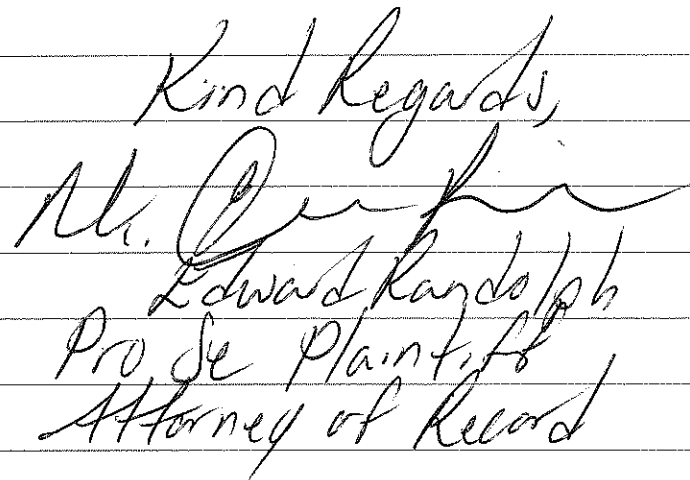 Kind Regards,
Mr.
Edward Randolph
Pro Se Plaintiff
Attorney of Record